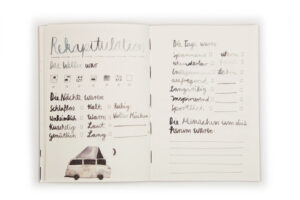 Rekapitulation
Das Wetter war
Die Nächte waren
Schlaflos Kalt Ruhig
Unheimlich Warm Voller Mücken
Kuschelig Laut
Gemütlich Lang
Die Tage waren
Spannend
Wunderbar
Entspannend
Aufregend
Langweilig
Inspirierend
Sportlich
Die Menschen um dich
herum waren